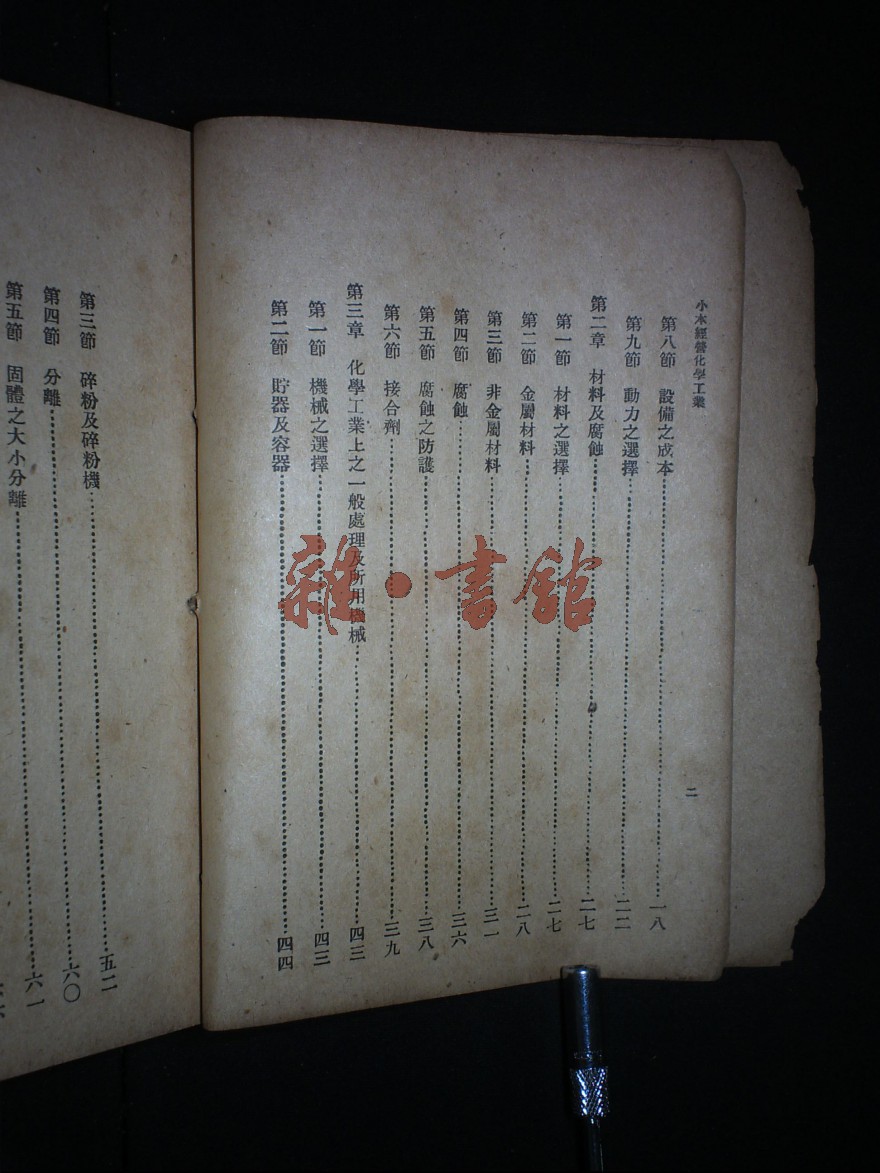 小本經營化學工業
二
第八節 設備之成本……一八
第九節 動力之選擇……二二
第二章 材料及腐蝕……二七
第一節 材料之選擇……二七
第二節 金屬材料……二八
第三節 非金屬材料……三一
第四節 腐蝕……三六
第五節 腐蝕之防護……三八
第六節 接合劑……三九
第三章 化學工業上之一般處理及所用機械……四三
第一節 機械之選擇……四三
第二節 貯器及容器……四四
第三節 碎粉及碎粉機……五二
第四節 分離……六〇
第五節 固體之大小分離……六一
雜·書館